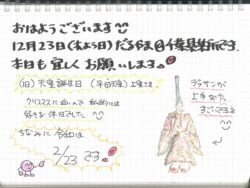 おはようございます
12月23日(木よう日)だるやま@千葉県生所です。
本日も宜しくお願いします。
(旧)天皇誕生日(平成天皇)上皇さま
クリスマスに近いので 私的には
好きな休日でした
ちなみに 令和は
2/23 です。
テラサンが
上手かった
すごいですネ